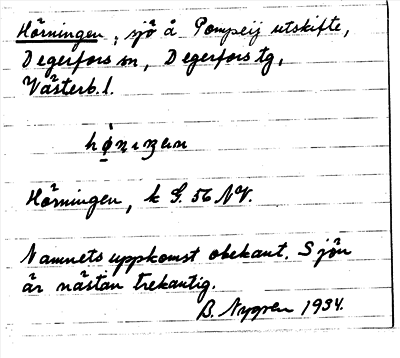 Hörningen, sjö å Pompeij utskifte,
Degerfors sn, Degerfors tg,
Västerb. l.
Hörningen, k G. 56 NV.
Namnets uppkomst obekant. Sjön
är nästan trekantig.
B. Nygren 1934.